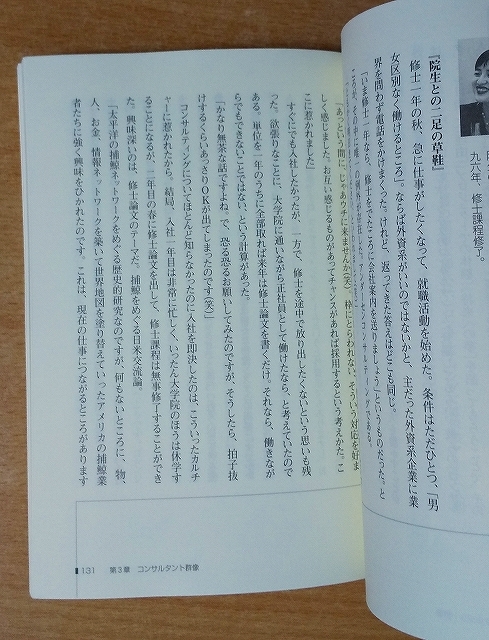 九六年、修士課程修了。
『院生との二足の草鞋』
修士一年の秋、急に仕事がしたくなって、就職活動を始めた。条件はただひとつ、「男
女区別なく働けるところ」。ならば外資系がいいのではないかと、主だった外資系企業に業
界を問わず電話をかけまくった。けれど、返ってきた答えはどこも同じ。
「いま修士一年なら、修士をでたころに会社案内を送りましょう」というものだった。と
ころが、その中に唯一の例外が存在した。アンダーセンコンサルティングである。
「あっという間に、じゃあウチに来ませんか（笑）　枠にとらわれない、そういう対応を好ま
しく感じました。お互い感じるものがあってチャンスがあれば採用するという考えかた。こ
こに惹かれました」
すぐにでも入社したかったが、一方で、修士を途中で放り出したくないという思いも残
った。欲張りなことに、大学院に通いながら正社員として働けたなら、と考えていたので
ある。単位を一年のうちに全部取れば来年は修士論文を書くだけ。それなら、働きなが
らでもできないことではない、という計算があった。
「かなり無茶な話ですよね。で、恐る恐るお願いしてみたのですが、そうしたら、拍子抜
けするくらいあっさりOKが出てしまったのです（笑）」
コンサルティングについてほとんど知らなかったのに入社を即決したのは、こういったカルチ
ャーに惹かれたから。結局、入社一年目は非常に忙しく、いったん大学院のほうは休学す
ることになるが、二年目の春に修士論文を出して、修士課程は無事修了することができ
た。興味深いのは、修士論文のテーマだ。捕鯨をめぐる日米交流論。
「太平洋の捕鯨ネットワークをめぐる歴史的研究なのですが、何もないところに、物、
人、お金、情報ネットワークを築いて世界地図を塗り替えていったアメリカの捕鯨業
者たちに強く興味をひかれたのです。これは、現在の仕事につながるところがあります
131　第3章　コンサルタント群像